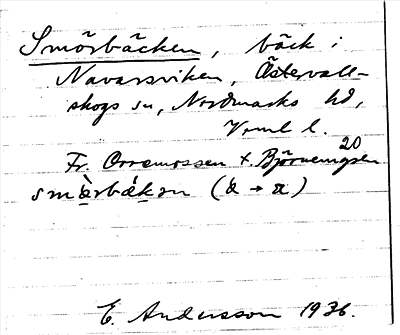 Smörbäcken, bäck i
Navarsviken, Östervall-
skogs sn, Nordmarks hd,
Vrml l.
20
Fr. Orremossen t. Björnemyren
smæ̀rbækən (á → æ)
E. Andersson 1936.